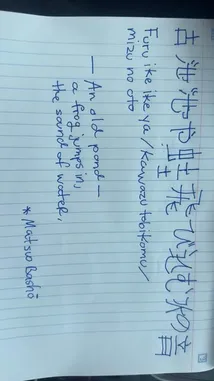 古池池や蛙飛び込む水の音
Furu ike ike ya / Kawazu tobikomu /
mizu no oto
— An old pond —
a frog jumps in,
the sound of water.
*Matsuo Bashō